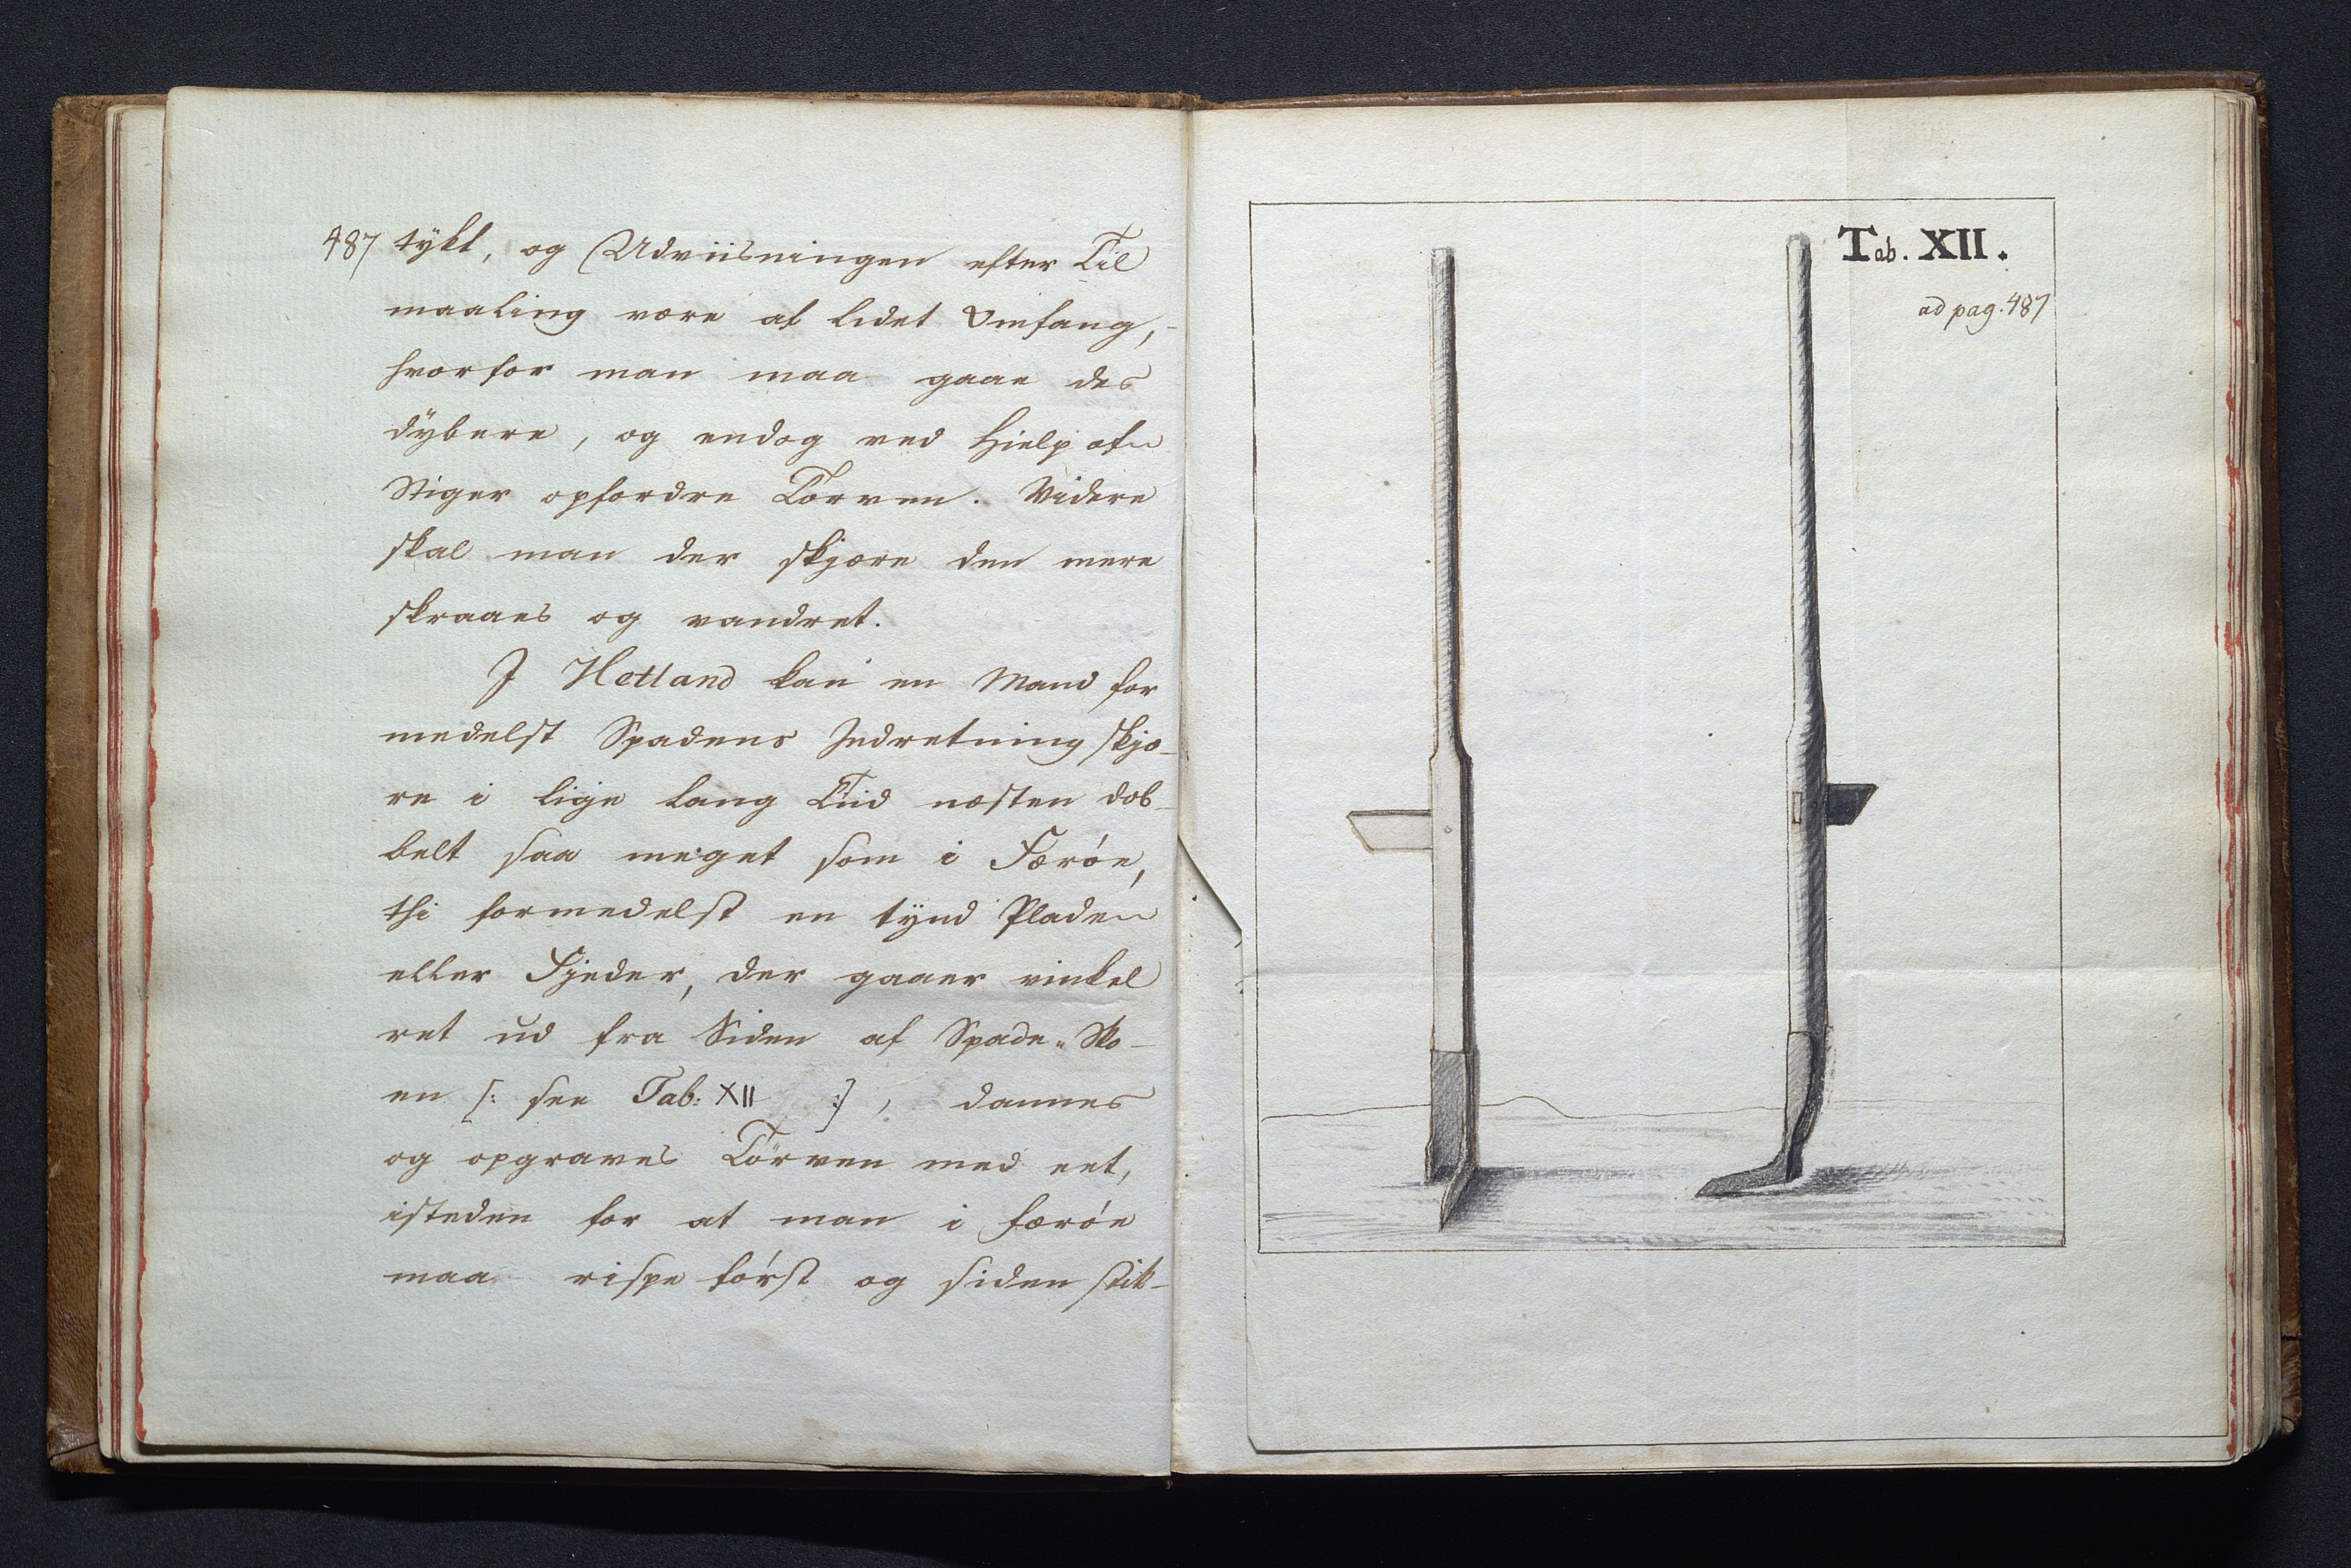 487 tykt, og Udviisningen efter Til
maaling være af lidet Omfang,
hvorfor man maa gaae des
dÿbere, og endog ved Hielp af
Stiger opfordre Törven. Videre
skal man der skjære den mere
skraaes og vandret.
I Hetland kan en Mand for
medelst Spadens Indretning skjæ-
re i lige lang Tiid næsten dob-
belt saa meget som i Færóe,
thi formedelst en tÿnd Plade
eller Fjeder, der gaaer vinkel
ret ud fra Siden af Spade-Sko-
en [: see Tab: XII :], dannes
og opgraves Törven med eet,
isteden for at man i Færóe
maa rispe fórst og siden stik-
Tab. XII.
ad pag. 487